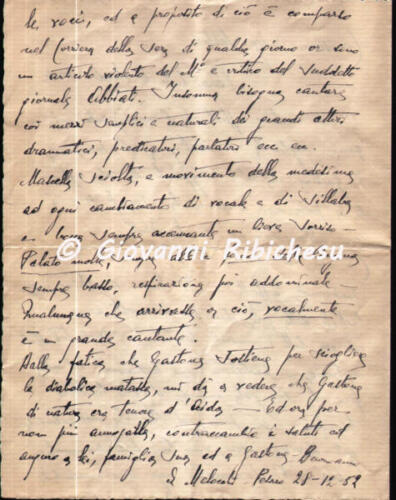 le voci, ed a proposito di ciò è comparso
nel Corriere della Sera di qualche giorno or sono
un articolo violento del M° e critico del suddetto
giornale Abbiati. Insomma bisogna cantare
coi mezzi semplici e naturali dei grandi attori
drammatici, predicatori, parlatori ecc. ecc.
Mascella sciolta, e movimento della medesima
ad ogni cambiamento di vocale e di sillaba
e bocca sempre accennante un lieve sorriso
Palato molle,
sempre basso, respirazione più addominale -
Qualunque che arrivasse a ciò, vocalmente
è un grande cantante.
Dalla fatica che Gastone sostiene per sciogliere
la diabolica matassa, mi dà a vedere che Gastone
di natura era tenore d'Aida - Ed ora per
non più annojarla, contraccambio i saluti ed
auguro a lei, famiglia sua ed a Gastone
A Melocchi Pesaro 28-12-52
© Giovanni Ribichesu